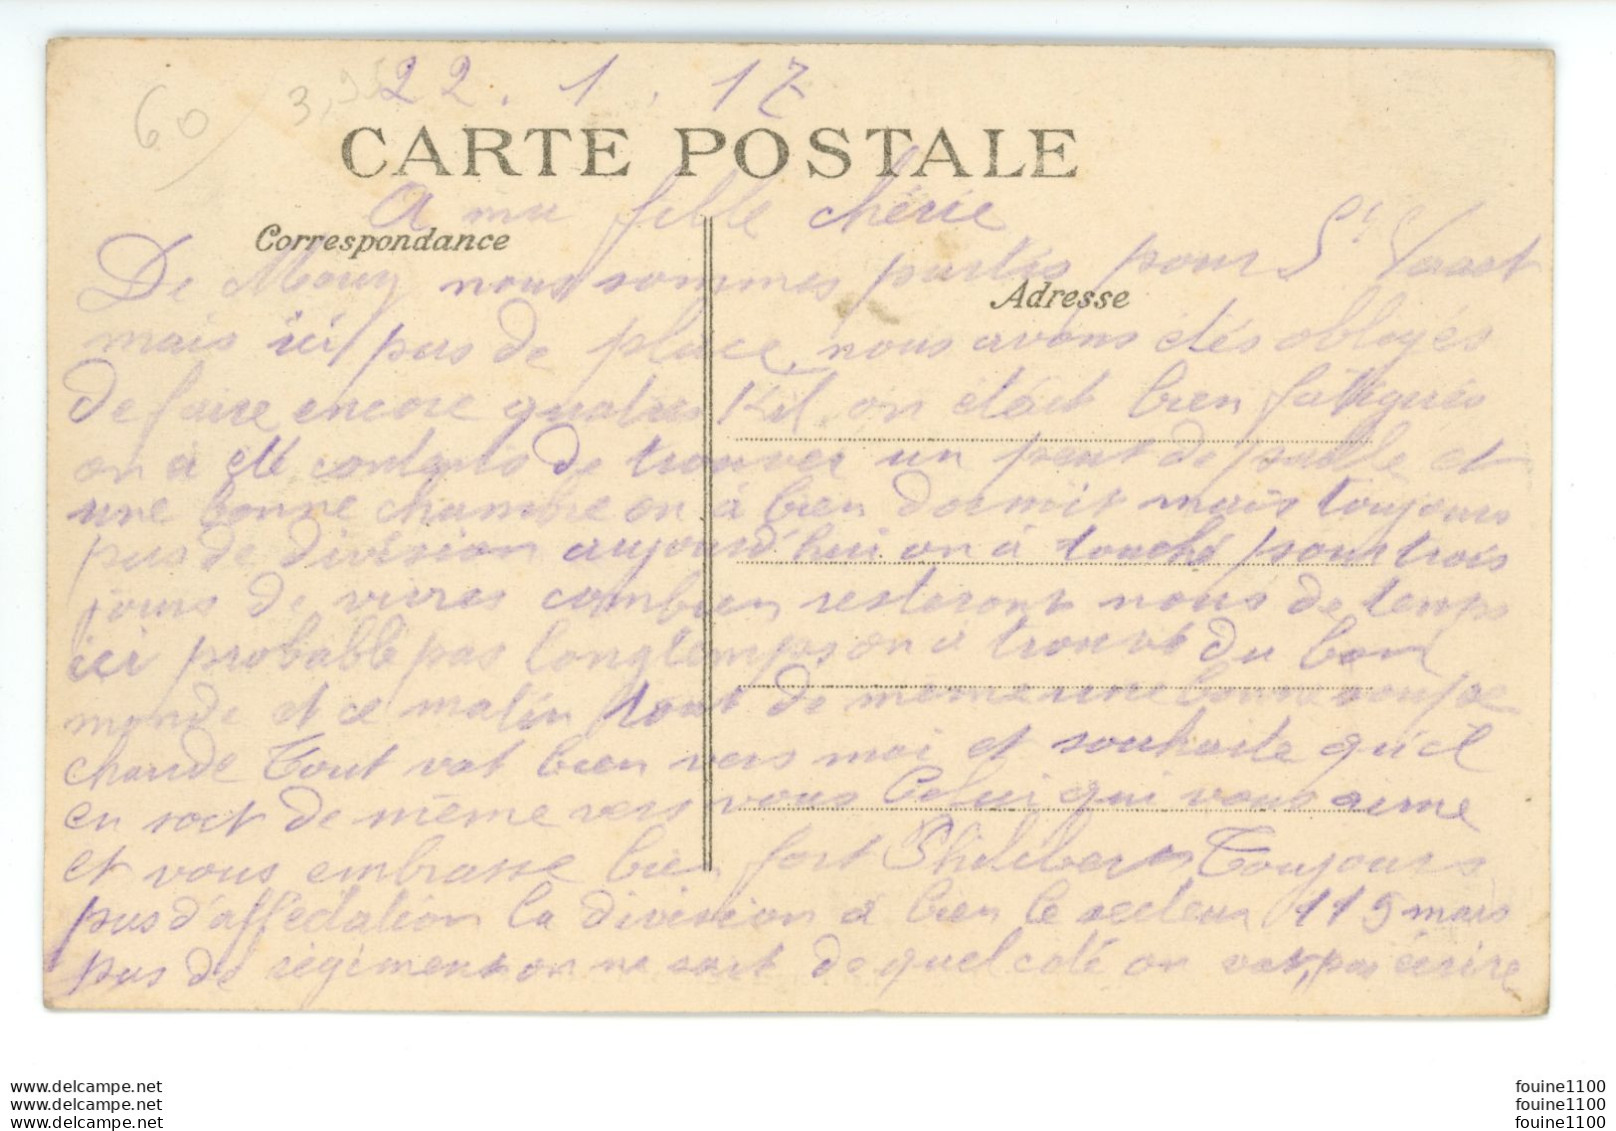 60
3,95
22.1.17
CARTE POSTALE
A ma fille chérie
Correspondance
De Mouy nous sommes partis pour St Vaast
Adresse
mais ici pas de place, nous avons étés obligés
de faire encore quatres Kil. on était bien fatigués
on à été contents de trouver un peut de paille et
une bonne chambre on à bien dormit mais toujours
pas de division aujourd'hui on à touché pour trois
jours de vivres combien resterons nous de temps
ici probable pas longtemps on à trouvé du bon
monde et ce matin tout de même une bonne soupe
chaude Tout vat bien vers moi et souhaite qu'il
en soit de même vers vous Celui qui vous aime
et vous embrasse bien fort Philibert Toujours
pas d'affectation la division à bien le secteur 119 mais
pas de régiment on ne sait de quel coté on vat, pas écrire
www.delcampe.net
www.delcampe.net
www.delcampe.net
fouine1100
fouine1100
fouine1100